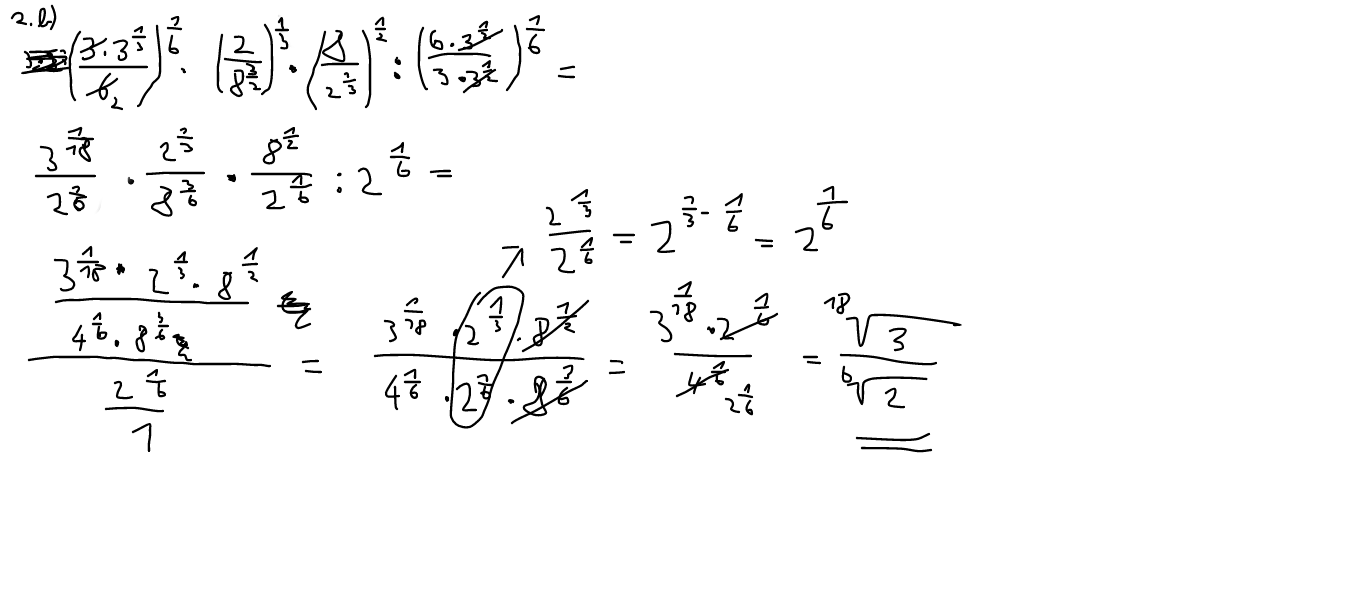 2.b)
(3·3^{1/3}/6_2)^{1/6} · (2/8^{3/2})^{1/3} · (8/2^{1/3})^{1/2} : (6·3^{1/2}/3·3^{1/2})^{1/6} =
3^{1/18}/2^{1/6} · 2^{1/3}/8^{3/6} · 8^{1/2}/2^{1/6} : 2^{1/6} =
→ 2^{1/3}/2^{1/6} = 2^{1/3 - 1/6} = 2^{1/6}
(3^{1/18} · 2^{1/3} · 8^{1/2})/(4^{1/6} · 8^{3/6})/(2^{1/6}/1) = (3^{1/18} · 2^{1/3} · 8^{1/2})/(4^{1/6} · 2^{1/6} · 8^{3/6}) = (3^{1/18} · 2^{1/6})/(4^{1/6} 2^{1/6}) = ¹⁸√3/⁶√2